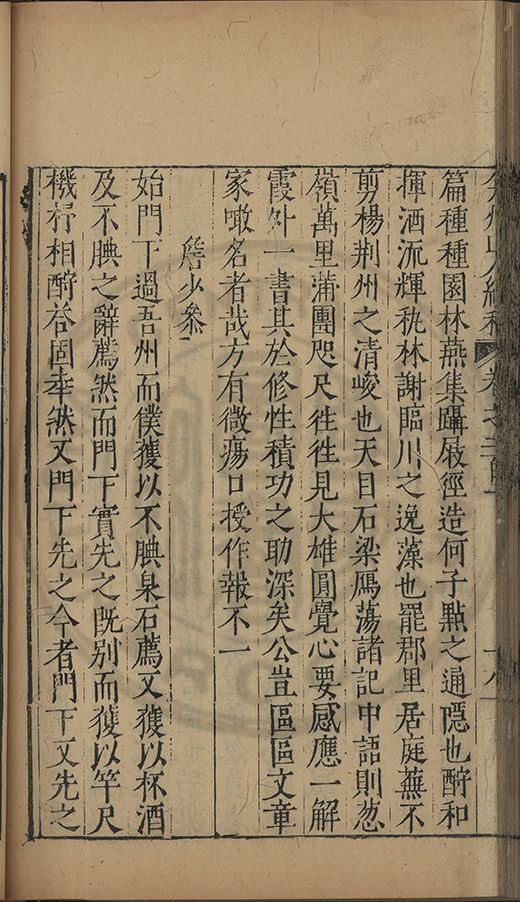 弇州山人續稿 卷之二百 十八
篇種種園林燕集躡屐徑造何子㸃之通隱也酧和
揮洒流輝秇林謝臨川之逸藻也罷郡里居庭蕪不
剪楊荆州之清峻也天目石梁鴈蕩諸記中語則葱
嶺萬里蒲團咫尺徃徃見大雄圓覺心要感應一解
霞外一書其於修性積功之助深矣公豈區區文章
家噉名者哉方有微瘍口授作報不一
詹少參
始門下過吾州而僕獲以不腆泉石薦又獲以杯酒
及不腆之辭薦然而門下實先之既别而獲以竿尺
機杼相酧荅固幸然又門下先之今者門下又先之